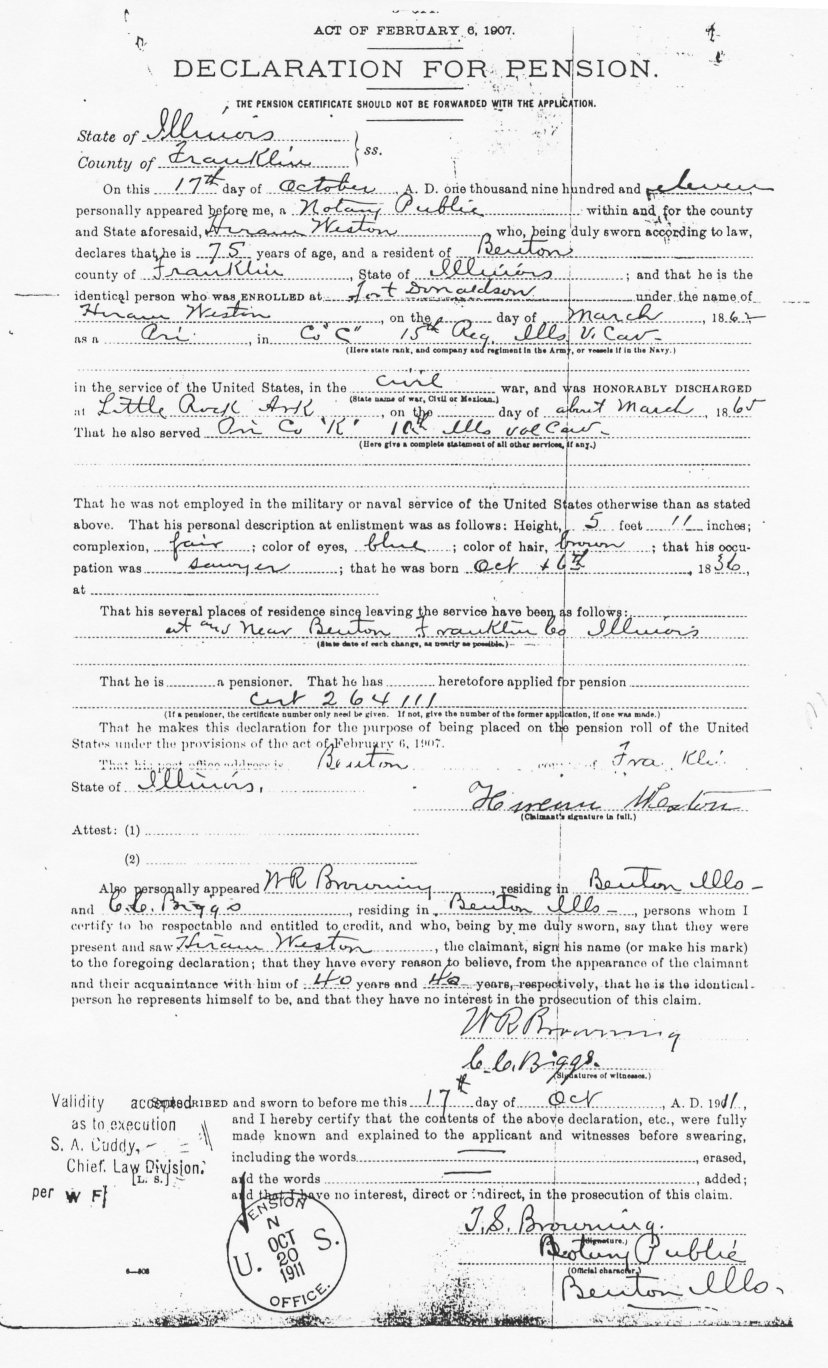 ACT OF FEBRUARY 6, 1907.
DECLARATION FOR PENSION.
THE PENSION CERTIFICATE SHOULD NOT BE FORWARDED WITH THE APPLICATION.
State of Illinois
County of Franklin } ss.
On this 17th day of October, A. D. one thousand nine hundred and eleven
personally appeared before me, a Notary Public within and for the county
and State aforesaid, Hiram Weston who, being duly sworn according to law,
declares that he is 75 years of age, and a resident of Benton
county of Franklin, State of Illinois; and that he is the
identical person who was ENROLLED at Fort Donaldson under the name of
Hiram Weston, on the day of March, 1862
as a Pri, in Co "C" 15th Reg. Ills V. Cav-
(Here state rank, and company and regiment in the Army, or vessels if in the Navy.)
in the service of the United States, in the civil war, and was HONORABLY DISCHARGED
(State name of war, Civil or Mexican.)
at Little Rock Ark, on the day of about March, 1865
That he also served Pri Co "K" 10th Ills vol Cav-
(Here give a complete statement of all other services, if any.)
That he was not employed in the military or naval service of the United States otherwise than as stated
above. That his personal description at enlistment was as follows: Height, 5 feet 11 inches;
complexion, fair; color of eyes, blue; color of hair, brown; that his occu-
pation was sawyer; that he was born Oct 6th, 1836,
at
That his several places of residence since leaving the service have been as follows:
at and Near Benton Franklin Co Illinois
(State date of each change, as nearly as possible.)
That he is a pensioner. That he has heretofore applied for pension
Cert 264111
(If a pensioner, the certificate number only need be given. If not, give the number of the former application, if one was made.)
That he makes this declaration for the purpose of being placed on the pension roll of the United
States under the provisions of the act of February 6, 1907.
That his post office address is Benton county of Fra kli
State of Illinois,
Hiram Weston
(Claimant's signature in full.)
Attest: (1)
(2)
Also personally appeared W R Browning, residing in Benton Ills-
and C. C. Biggs, residing in Benton Ills-, persons whom I
certify to be respectable and entitled to credit, and who, being by me duly sworn, say that they were
present and saw Hiram Weston, the claimant, sign his name (or make his mark)
to the foregoing declaration; that they have every reason to believe, from the appearance of the claimant
and their acquaintance with him of 40 years and 40 years, respectively, that he is the identical
person he represents himself to be, and that they have no interest in the prosecution of this claim.
W R Browning
C. C. Biggs.
(Signatures of witnesses.)
SUBSCRIBED and sworn to before me this 17th day of Oct, A. D. 1911,
and I hereby certify that the contents of the above declaration, etc., were fully
made known and explained to the applicant and witnesses before swearing,
including the words, erased,
and the words, added;
and that I have no interest, direct or indirect, in the prosecution of this claim.
Validity accepted
as to execution
S. A. Cuddy,
Chief. Law Division.
[L. S.]
per W F
T. S. Browning.
(Signature.)
Notary Public
(Official character.)
Benton Ills.
PENSION
N
OCT
20
1911
U. S.
OFFICE.
6—806